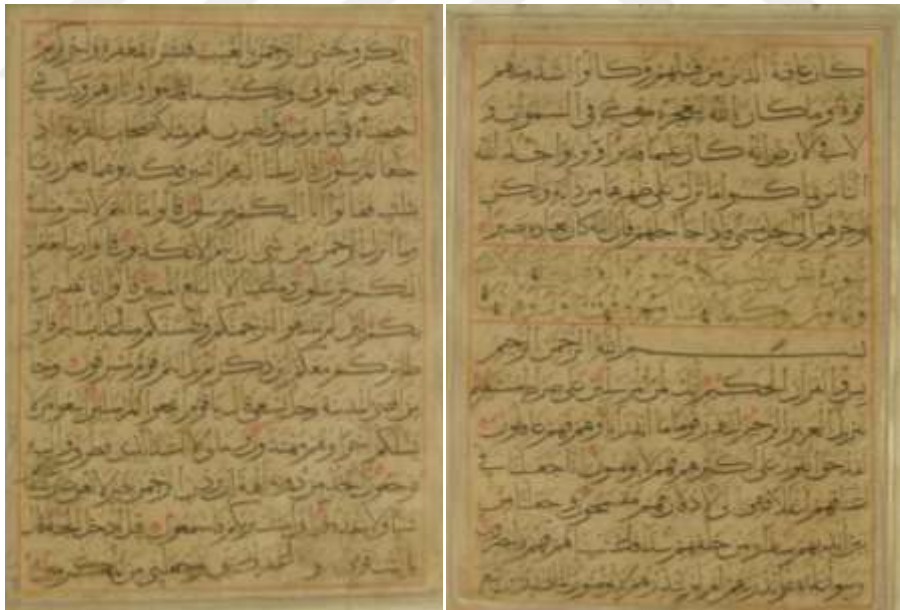 كان عاقبة الذين من قبلهم وكانوا اشد منهم
قوة وما كان الله ليعجزه من شيء في السموات و
لا في الارض انه كان عليما قديرا ولو يؤاخذ الله
الناس بما كسبوا ما ترك على ظهرها من دابة ولكن
يؤخرهم الى اجل مسمى فاذا جاء اجلهم فان الله كان بعباده بصيرا
سورة يس
بسم الله الرحمن الرحيم
يس والقران الحكيم انك لمن المرسلين على صراط مستقيم
تنزيل العزيز الرحيم لتنذر قوما ما انذر اباؤهم فهم غافلون
لقد حق القول على اكثرهم فهم لا يؤمنون انا جعلنا في
اعناقهم اغلالا فهي الى الاذقان فهم مقمحون وجعلنا من
بين ايديهم سدا ومن خلفهم سدا فاغشيناهم فهم لا يبصرون
وسواء عليهم ءانذرتهم ام لم تنذرهم لا يؤمنون انما تنذر من اتبع
الذكر وخشي الرحمن بالغيب فبشره بمغفرة واجر كريم
انا نحن نحي الموتى ونكتب ما قدموا واثارهم وكل شيء
احصيناه في امام مبين واضرب لهم مثلا اصحاب القرية اذ
جاءها المرسلون اذ ارسلنا اليهم اثنين فكذبوهما فعززنا
بثالث فقالوا انا اليكم مرسلون قالوا ما انتم الا بشر مثلنا
وما انزل الرحمن من شيء ان انتم الا تكذبون قالوا ربنا يعلم انا
اليكم لمرسلون وما علينا الا البلاغ المبين قالوا انا تطيرنا
بكم لئن لم تنتهوا لنرجمنكم وليمسنكم منا عذاب اليم قالوا
طائركم معكم ائن ذكرتم بل انتم قوم مسرفون وجاء
من اقصى المدينة رجل يسعى قال يا قوم اتبعوا المرسلين اتبعوا من لا
يسئلكم اجرا وهم مهتدون وما لي لا اعبد الذي فطرني واليه
ترجعون ءاتخذ من دونه الهة ان يردن الرحمن بضر لا تغن عني
فاسمعون قيل ادخل الجنة قال
يا ليت قومي وجعلني من المكرمين